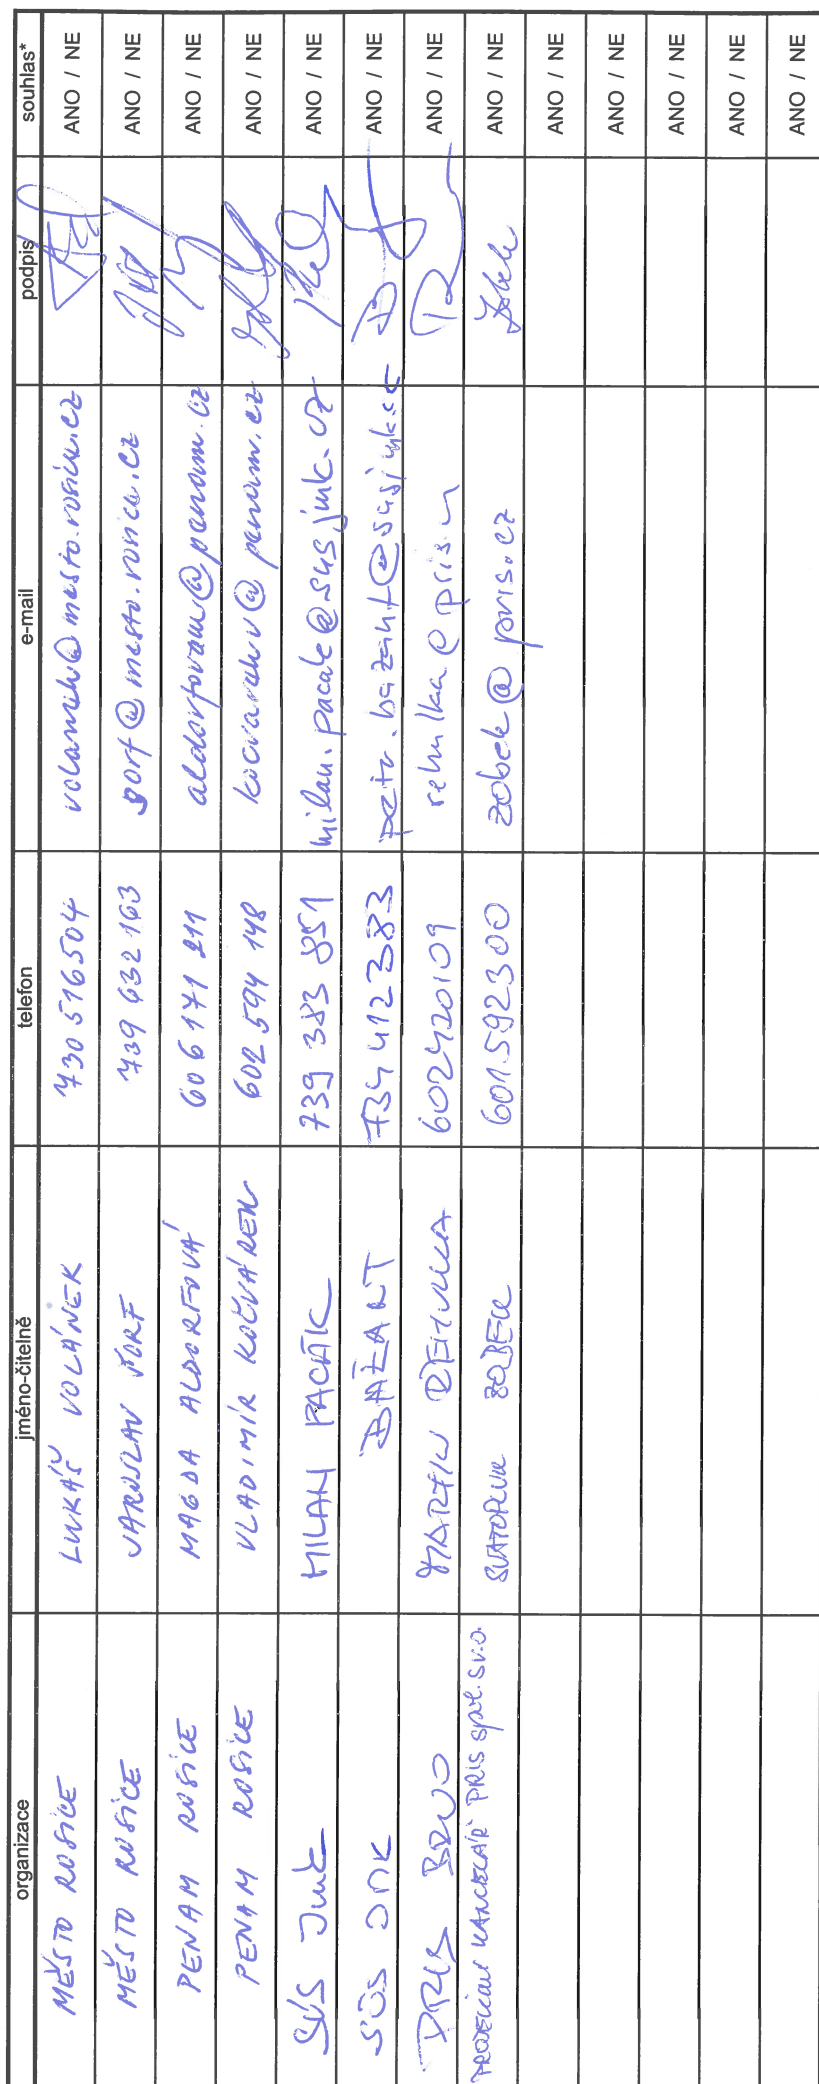 organizace jméno-čitelně telefon e-mail podpis souhlas*
MĚSTO ROSICE LUKÁŠ VOLÁNEK 730 516504 volanek@mesto.rosice.cz ANO / NE
MĚSTO ROSICE JAROSLAV ŠORF 739 632 163 sorf@mesto.rosice.cz ANO / NE
PENAM ROSICE MAGDA ALDORFOVÁ 606 171 211 aldorfovam@penam.cz ANO / NE
PENAM ROSICE VLADIMÍR KOČVÁREK 602 594 148 kocvarekv@penam.cz ANO / NE
SÚS JmK MILAN PACÁK 739 383 851 milan.pacak@susjmk.cz ANO / NE
SÚS JMK BAŽANT 734 412383 petr.bazant@susjmk.cz ANO / NE
PRIS BRNO MARTIN ŘEHULKA 602420109 rehulka@pris.cz ANO / NE
PROJEKČNÍ KANCELÁŘ PRIS spol. s r.o. SVATOPLUK ZOBEK 601592300 zobek@pris.cz ANO / NE
ANO / NE
ANO / NE
ANO / NE
ANO / NE
ANO / NE